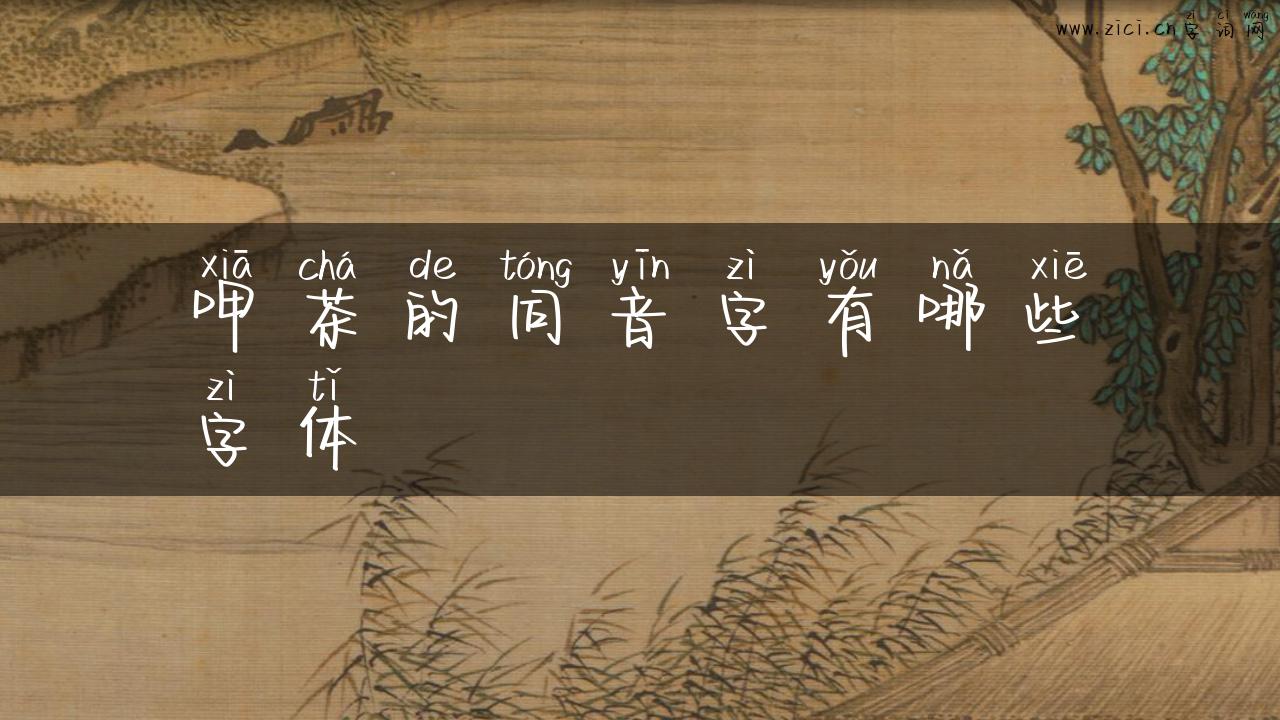 zì cí wǎng
www.zici.cn字词网
xiā chá de tóng yīn zì yǒu nǎ xiē
呷茶的同音字有哪些
zì tǐ
字体